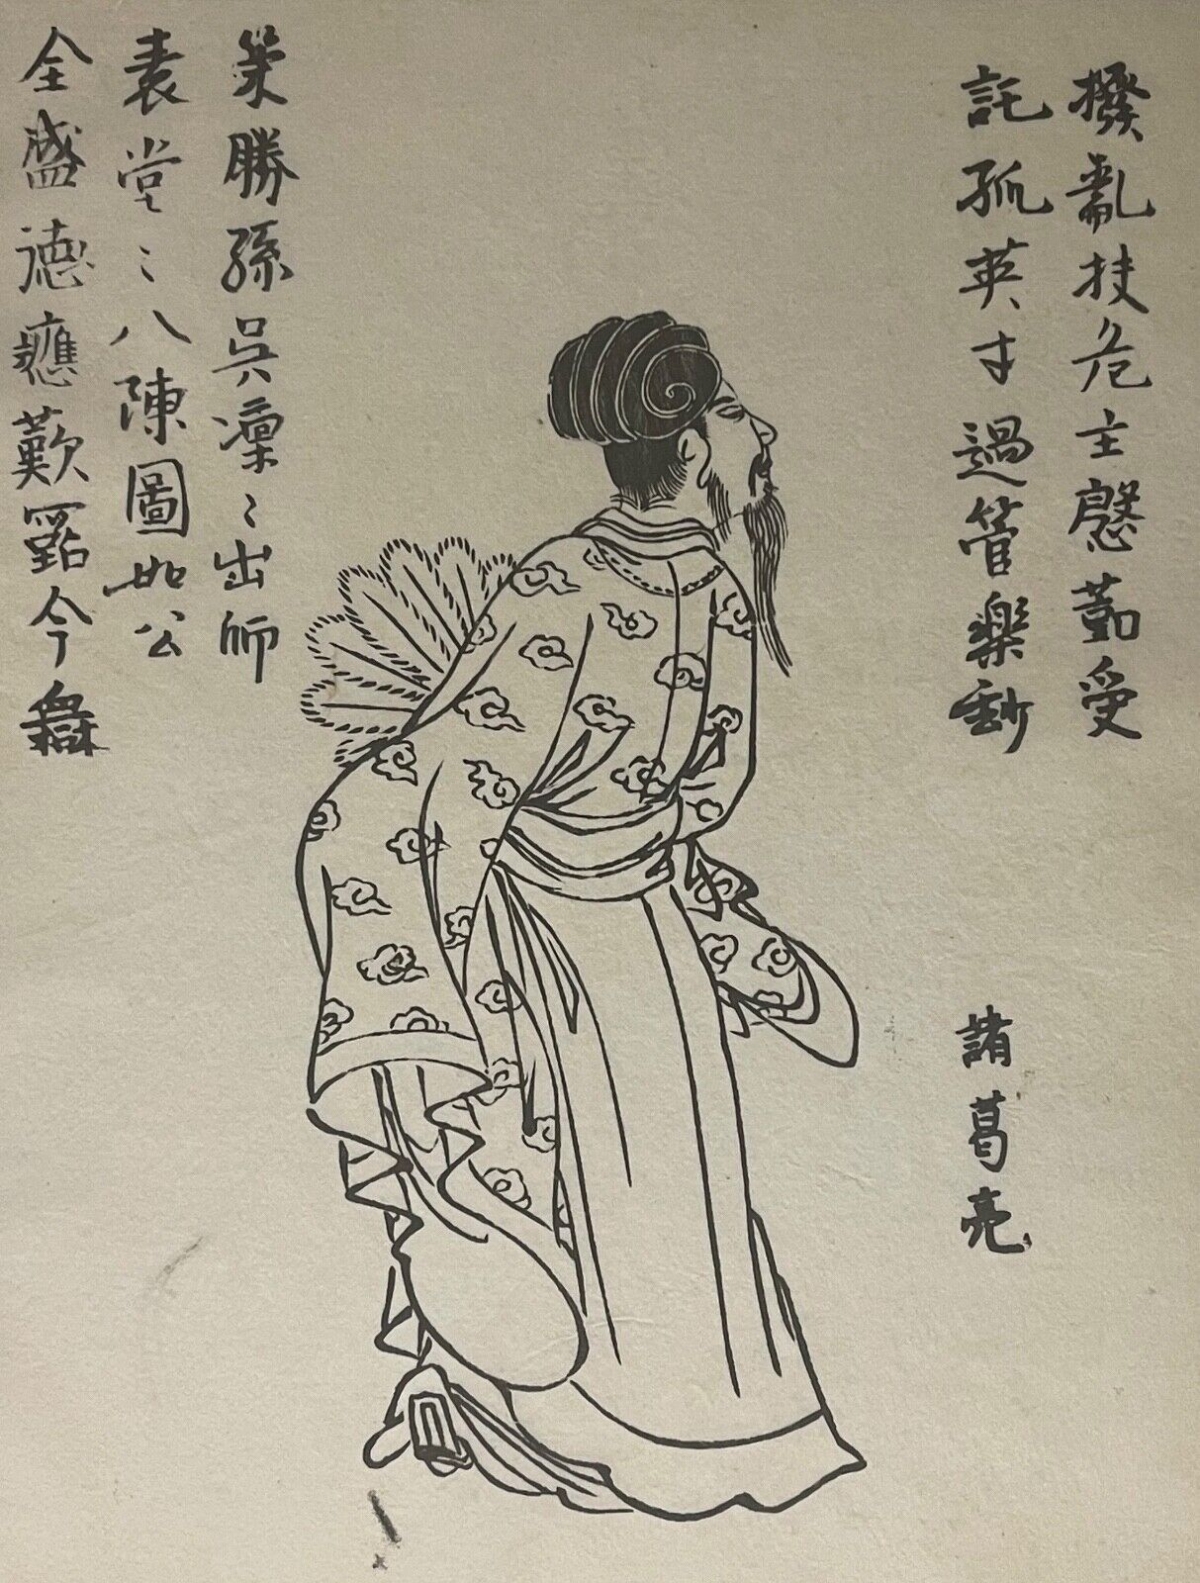 撥亂扶危主慇勤受
託孤英才過管樂妙
策勝孫吳凜〻出師
表堂〻八陳圖如公
全盛德應歎古今無
諸葛亮